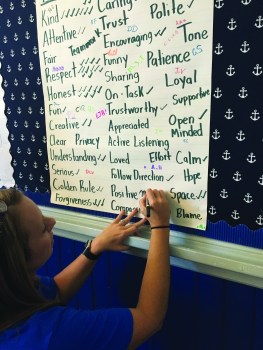 Kind ✓✓✓✓✓ Caring ✓✓
Attentive ✓✓ Trust Polite ✓
Fair Teamwork Encouraging ✓✓ Tone
Respect ✓✓✓✓ Funny Patience GS
Honest ✓✓✓✓ Sharing Loyal
Fun On-Task ✓ Supportive
Creative Trustworthy ✓
Clear Privacy Appreciated Open Minded
Understanding ✓✓ Active Listening
Serious Loved Effort Calm ✓
Golden Rule Follow Direction Hope
Forgiveness Positive Space ✓✓
Blame